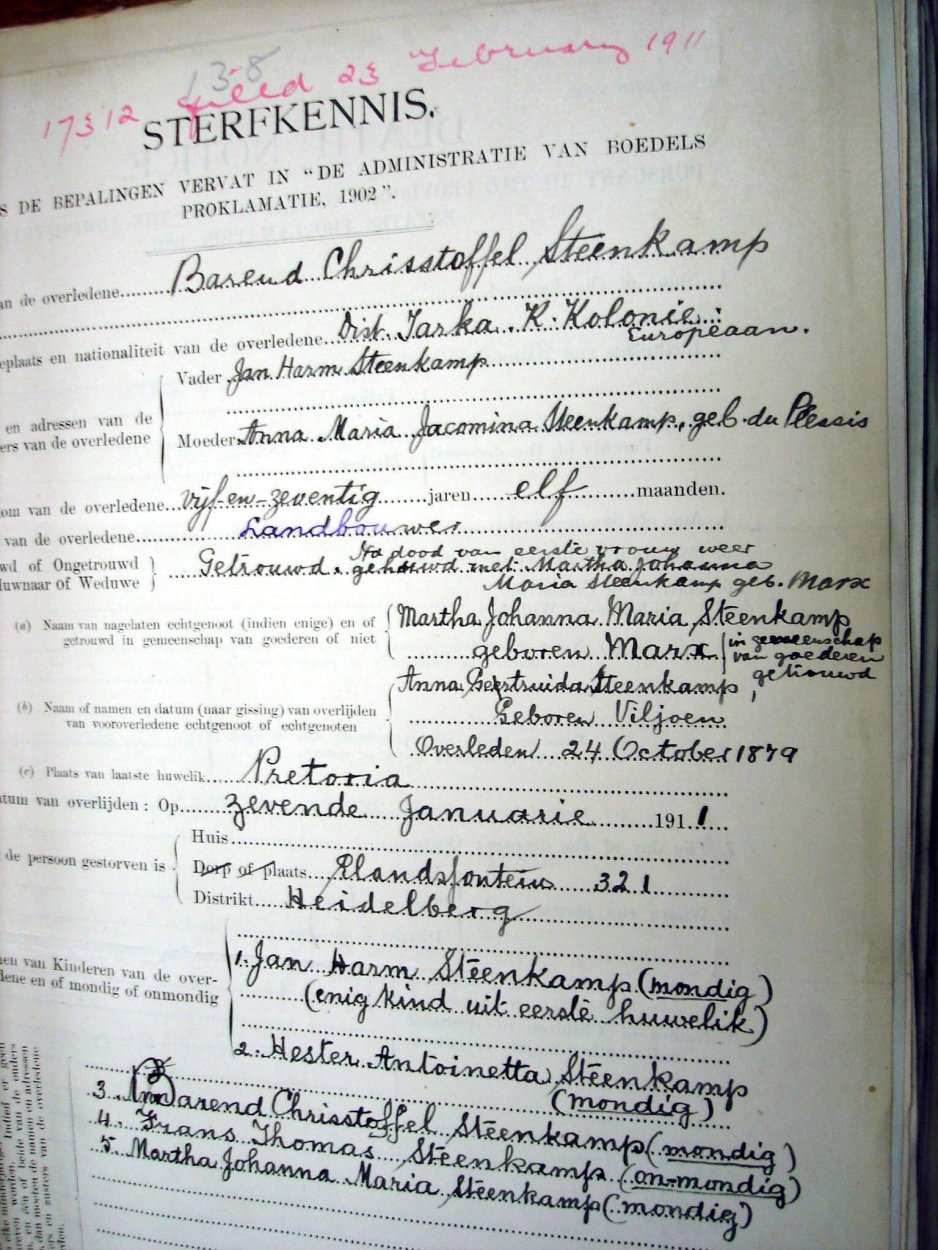 138
17312 filed 23 February 1911
STERFKENNIS.
S DE BEPALINGEN VERVAT IN "DE ADMINISTRATIE VAN BOEDELS
PROKLAMATIE, 1902".
an de overledene Barend Chrisstoffel Steenkamp
eplaats en nationaliteit van de overledene Dist. Tarka K. Kolonie:
Europeaan.
en adressen van de
ers van de overledene
Vader Jan Harm Steenkamp
Moeder Anna Maria Jacomina Steenkamp, geb. du Plessis
om van de overledene vijf-en-zeventig jaren elf maanden.
van de overledene Landbouwer
wd of Ongetrouwd
duwnaar of Weduwe
Getrouwd. Na dood van eerste vrouw weer
gehouwd met Martha Johanna
Maria Steenkamp geb. Marx
(a) Naam van nagelaten echtgenoot (indien enige) en of
getrouwd in gemeenschap van goederen of niet
Martha Johanna Maria Steenkamp
geboren Marx
in gemeenschap
van goederen
getrouwd
(b) Naam of namen en datum (naar gissing) van overlijden
van vooroverledene echtgenoot of echtgenoten
Anna Geertruida Steenkamp,
Geboren Viljoen
Overleden 24 October 1879
(c) Plaats van laatste huwelik Pretoria
atum van overlijden: Op zevende Januarie 1911
de persoon gestorven is
Huis
Dorp of plaats Elandsfontein 321
Distrikt Heidelberg
en van Kinderen van de over-
dene en of mondig of onmondig
1. Jan Harm Steenkamp (mondig)
(enig kind uit eerste huwelik)
2. Hester Antoinetta Steenkamp
(mondig)
3. Barend Chrisstoffel Steenkamp (mondig)
4. Frans Thomas Steenkamp (on-mondig)
5. Martha Johanna Maria Steenkamp (mondig)